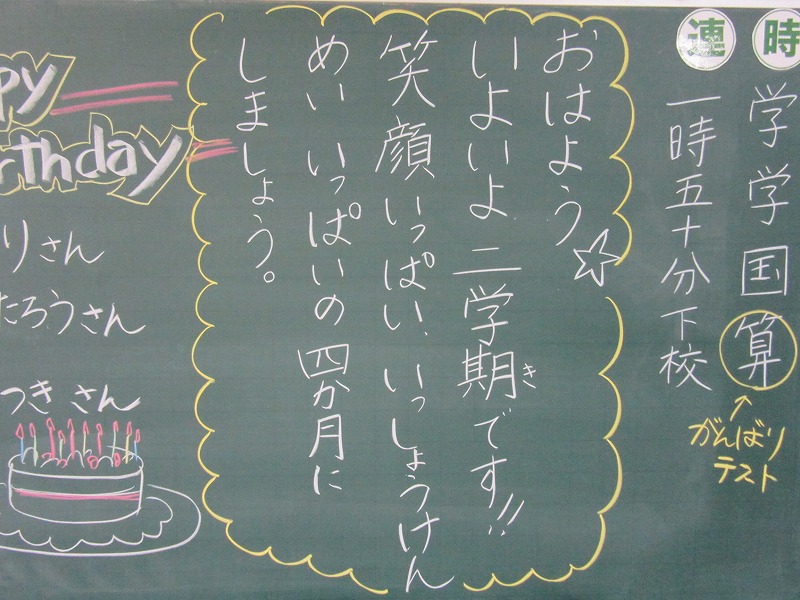 時
学学国算
がんばり
テスト
連
一時五十分下校
おはよう
いよいよ二学期です!!
き
笑顔いっぱい、いっしょうけん
めいいっぱいの四か月に
しましょう。
ppy
rthday
りさん
たろうさん
つきさん